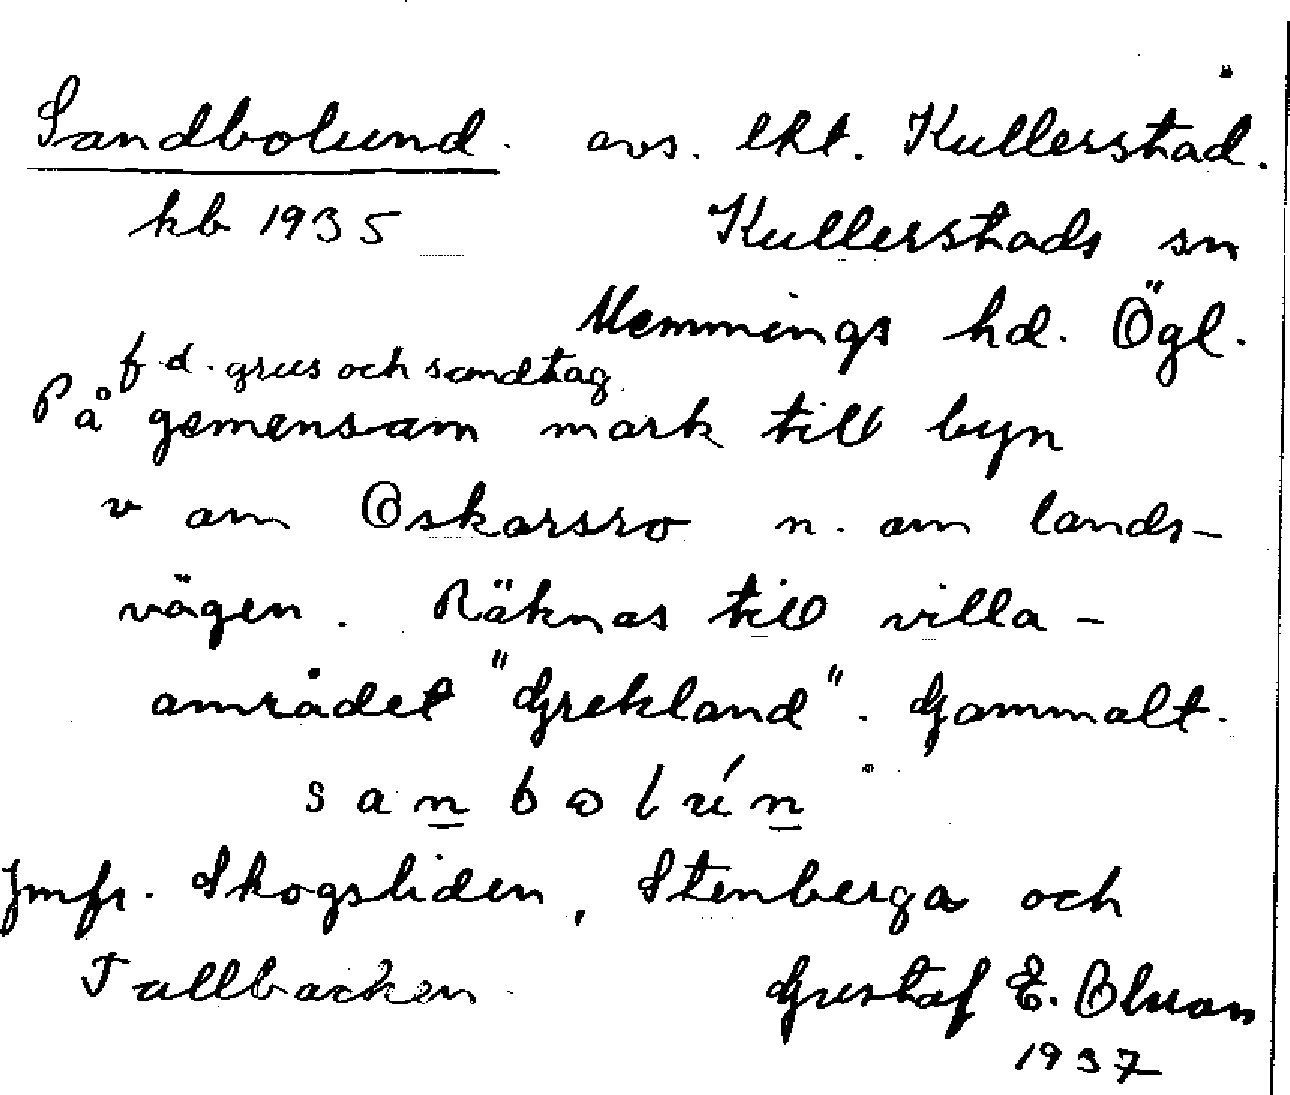 Sandbolund. avs. lht. Kullerstad.
kb 1935 Kullerstads sn
Memmings hd. Ögl.
f.d. grus och sandtag.
På gemensam mark till byn
v om Oskarsro n. om lands-
vägen. Räknas till villa-
området "Grekland". Gammalt.
sanbolún
Jmfr. Skogsliden, Stenberga och
Tallbacken. Gustaf E. Olsson
1937